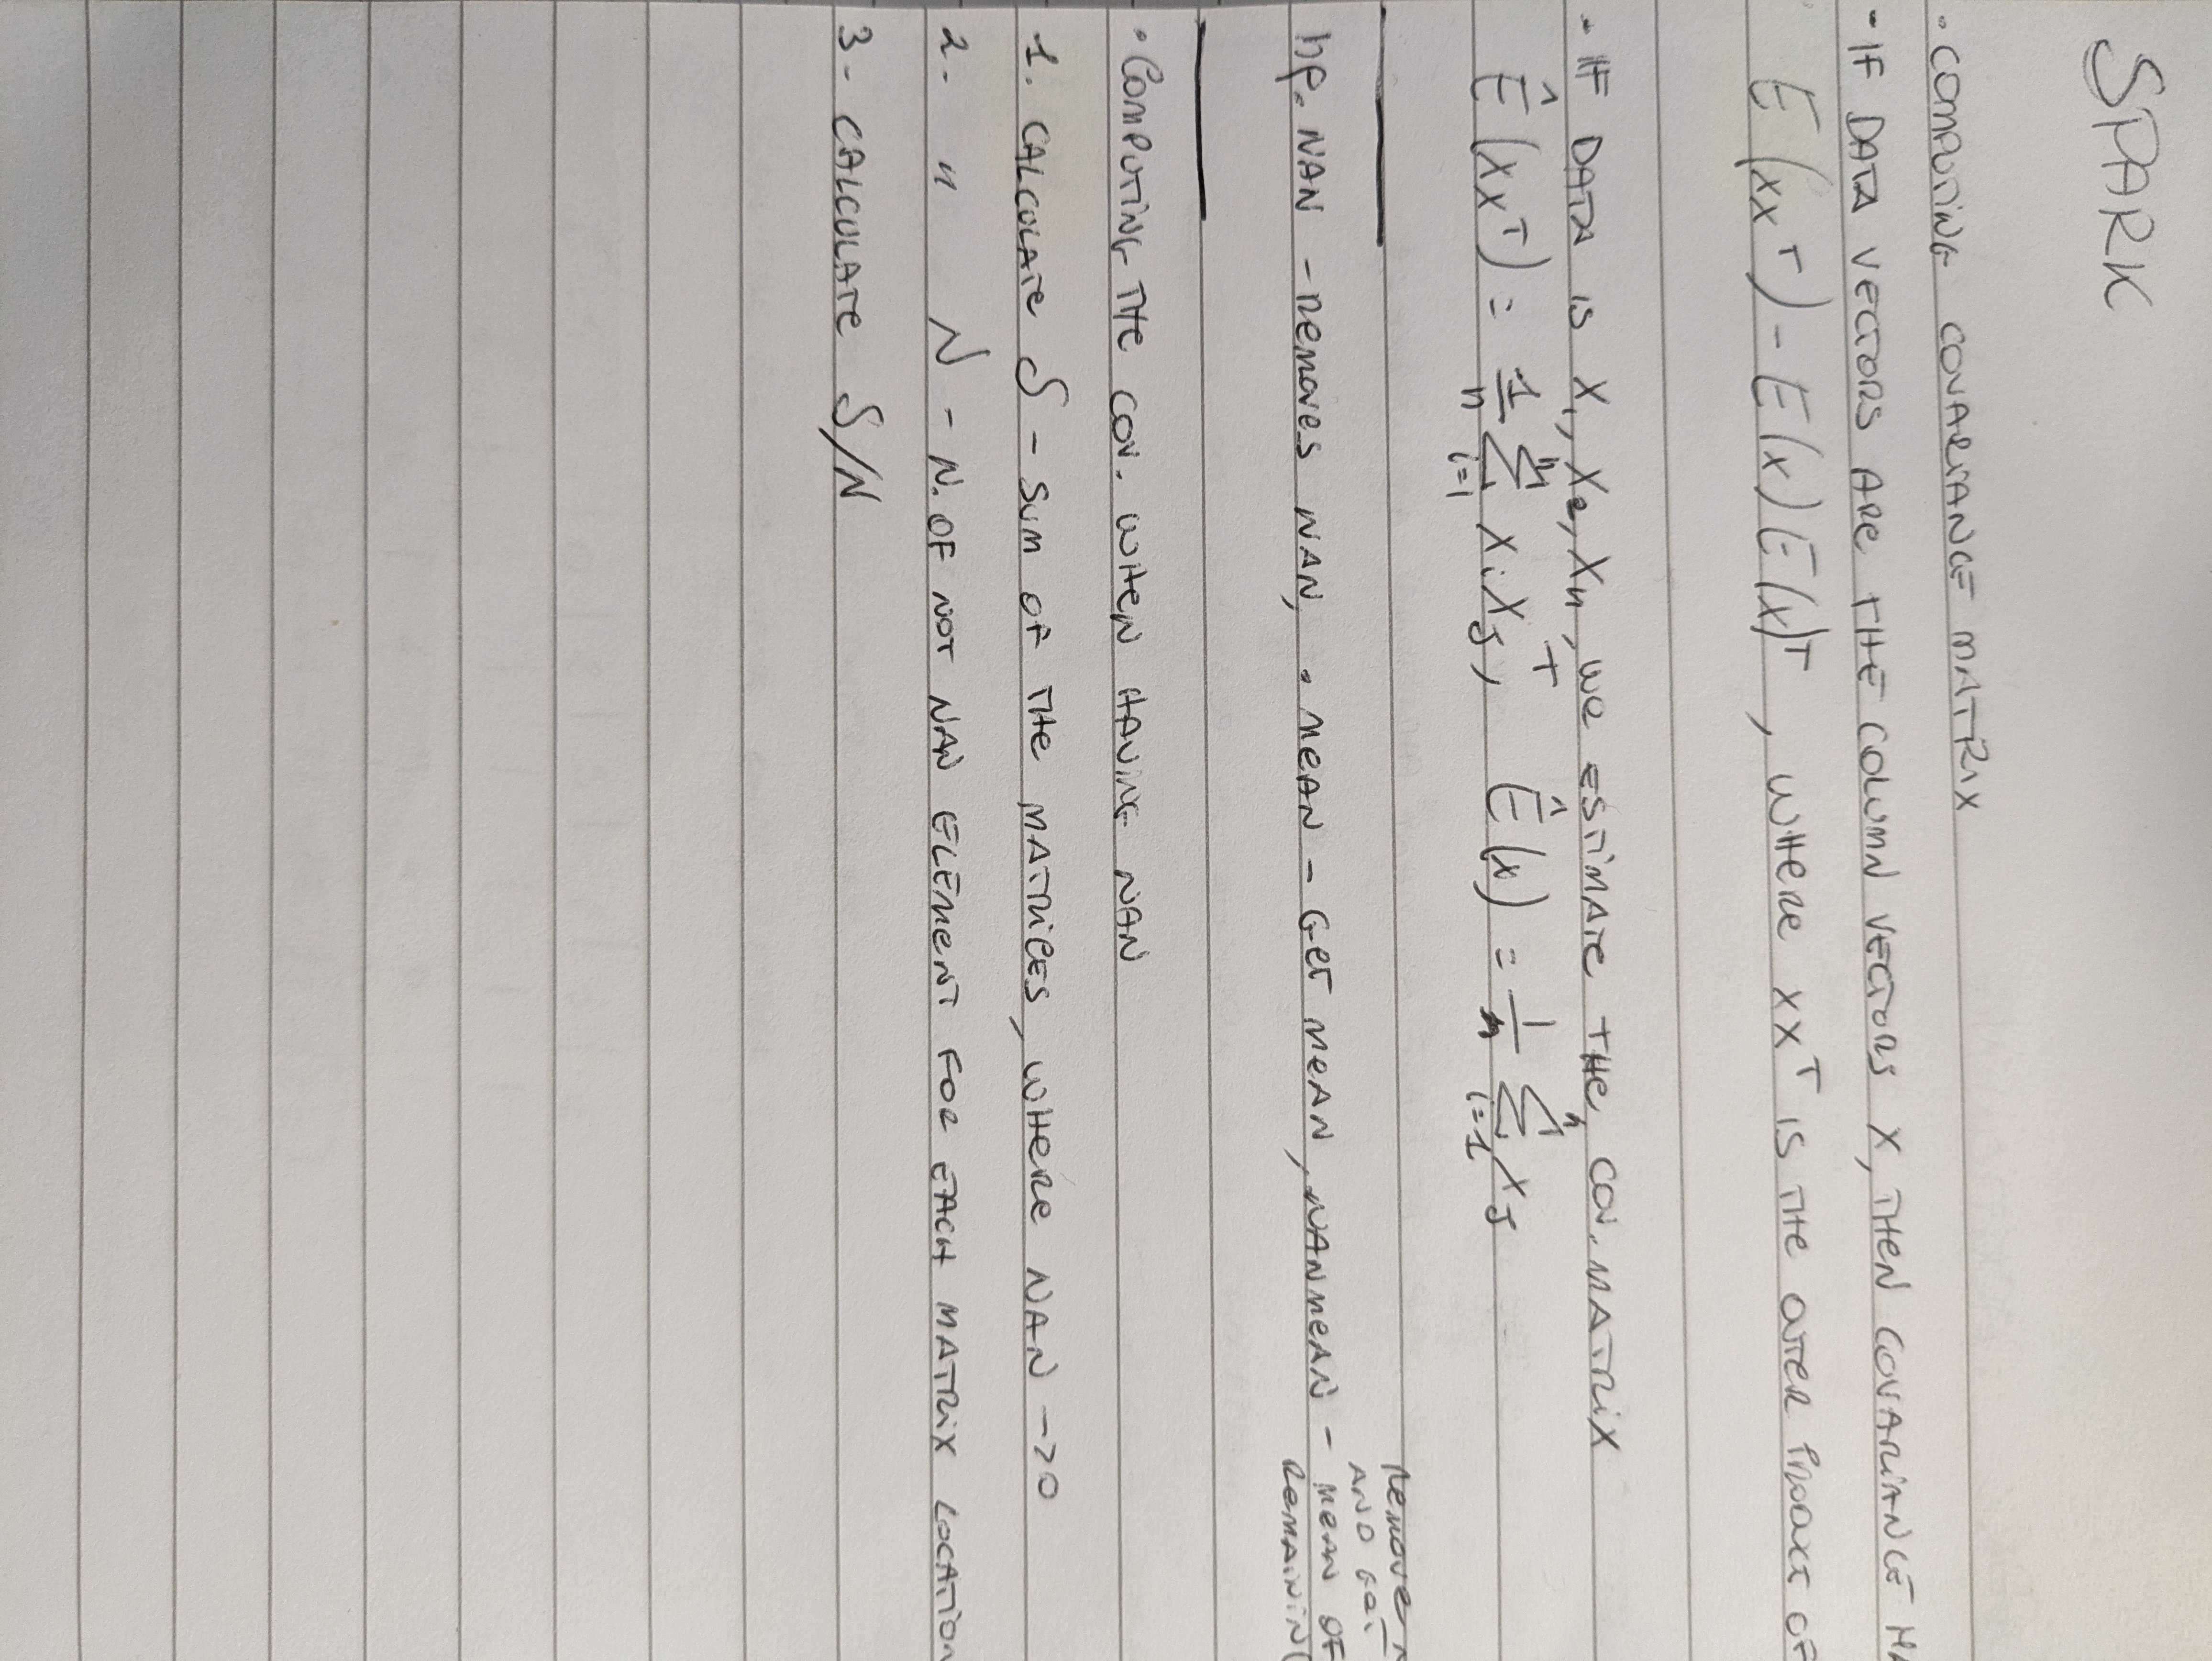 SPARK
. COMPUTING COVARIANCE MATRIX
- IF DATA VECTORS ARE THE COLUMN VECTORS X, THEN COVARIANCE MA
E(xxᵀ) - E(x)E(x)ᵀ, WHERE XXᵀ IS THE OUTER PRODUCT OF
. IF DATA IS X₁, X₂, Xn, WE ESTIMATE THE COV. MATRIX
Ê(XXᵀ) = 1/n Σ(i=1, n) Xi Xjᵀ, Ê(x) = 1/n Σ(i=1, n) Xj
np. NAN - REMOVES NAN, . MEAN - GET MEAN, NANMEAN - REMOVE N
AND GET
MEAN OF
REMAINING
. COMPUTING THE COV. WHEN HAVING NAN
1. CALCULATE S - SUM OF THE MATRICES, WHERE NAN -> 0
2. " N - N. OF NOT NAN ELEMENT FOR EACH MATRIX LOCATION
3 - CALCULATE S/N